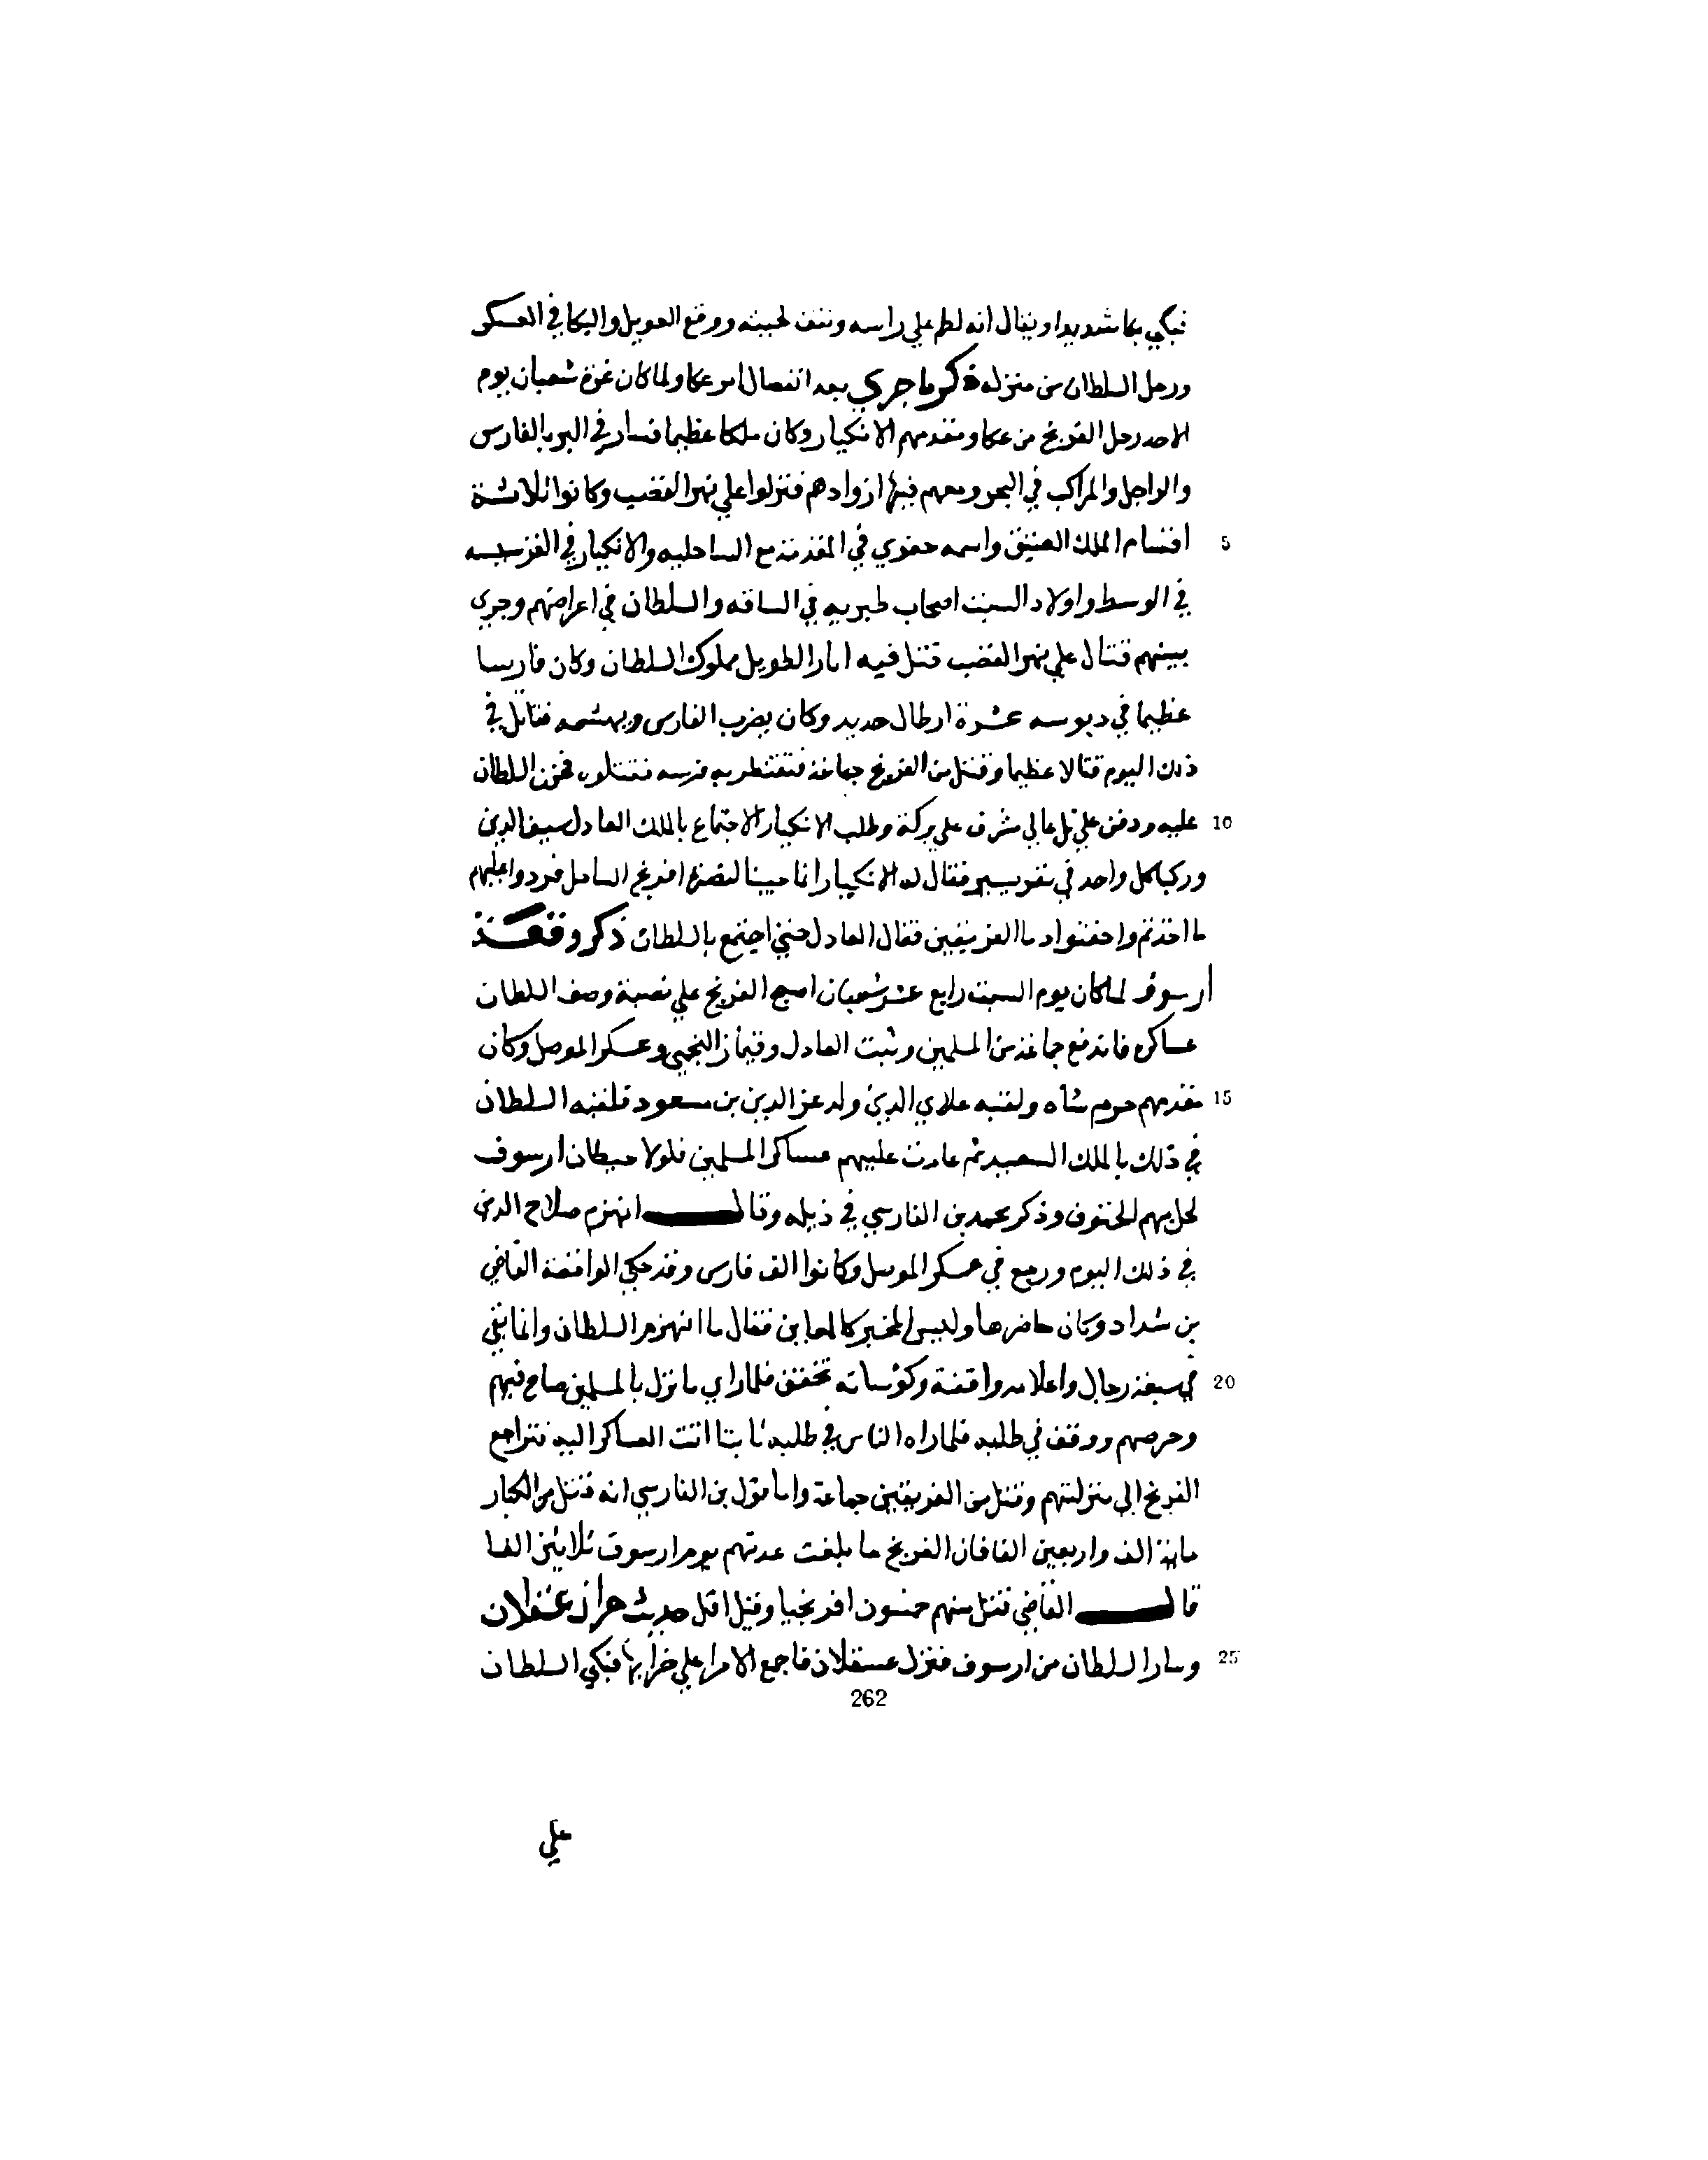 فبكي بكا شديدا ويقال انه لطم علي راسه ونتف لحيته ووقع العويل والبكا في العسكر
ورحل السلطان من منزله ذكر ما جري بعد انفصال امر عكا ولما كان غرة شعبان يوم
الاحد رحل الفرنج من عكا ومقدمهم الانكيار وكان ملكا عظيما فسار في البر بالفارس
والراجل والمراكب في البحر ومعهم فيها ازوادهم فنزلوا علي نهر القضب وكانوا ثلاثة
5 اقسام الملك العتيق واسمه جفري في المقدمة مع الساحليه والانكيار في الفرنسيسه
في الوسط واولاد الست اصحاب طبريه في الساقه والسلطان في اعراضهم وجري
بينهم قتال علي نهر القضب قتل فيه اياز الطويل مملوك السلطان وكان فارسا
عظيما في دبوسه عشرة ارطال حديد وكان يضرب الفارس ويهشمه فقاتل في
ذلك اليوم قتالا عظيما وقتل من الفرنج جماعة فتقنطر به فرسه فقتلوه فحزن السلطان
10 عليه ودفن علي تل عالي مشرف علي بركة وطلب الانكيار الاجتماع بالملك العادل سيف الدين
وركبا كل واحد في نفر يسير فقال له الانكيار انا جينا لنصرة افرنج الساحل فردوا عليهم
ما اخذتم واحقنوا دما الفريقين فقال العادل حتي اجتمع بالسلطان ذكر وقعة
ارسوف لما كان يوم السبت رابع عشر شعبان اصبح الفرنج علي تعبية وصف السلطان
عساكره فاندفع جماعة من المسلمين وثبت العادل وقيماز النجمي وعسكر الموصل وكان
15 مقدمهم خرم شاه ولقبه علاي الدين ولد عز الدين بن مسعود فلقبه السلطان
في ذلك بالملك السعيد ثم عادت عليهم عساكر المسلمين فلولا حيطان ارسوف
لحل بهم الحتوف وذكر محمد بن القارسي في ذيله وقال انهزم صلاح الدين
في ذلك اليوم ورجع في عسكر الموصل وكانوا الف فارس وقد حكي الواقعة القاضي
بن شداد وكان حاضرها وليس المخبر كالمعاين فقال ما انهزم السلطان وانما بقي
20 في سبعة رجال واعلامه واقفة وكوساته تخفق فلما راي ما نزل بالمسلمين صاح فيهم
وحرصهم ووقف في طلبه فلما راه الناس في طلبه ثابتا اتت العساكر اليه فتراجع
الفرنج الي منزلتهم وقتل من الفريقين جماعة واما قول بن القارسي انه قتل من الكفار
ماية الف واربعين الفا فان الفرنج ما بلغت عدتهم يوم ارسوف ثلاثين الفا
قال القاضي فقتل منهم خمسون افرنجيا وقيل اقل حديث خراب عسقلان
25 وسار السلطان من ارسوف فنزل عسقلان فاجمع الامرا علي خرابها فبكي السلطان
262
علي